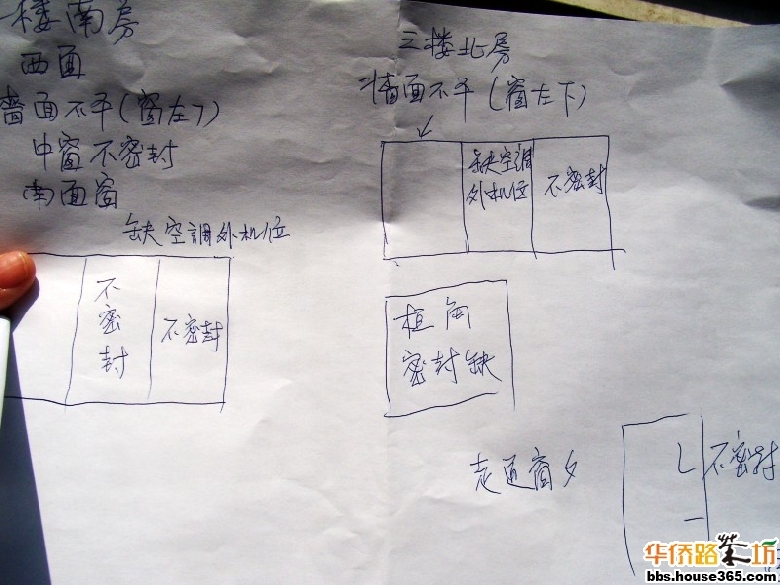 楼南房
西面
墙面不平(窗左下)
中窗不密封
南面窗
缺空調外机位
不密封
不密封
三楼北房
墙面不平(窗左下)
缺空調
外机位
不密封
框角
密封缺
走道窗
不密封
华侨路茶坊
bbs.house365.com